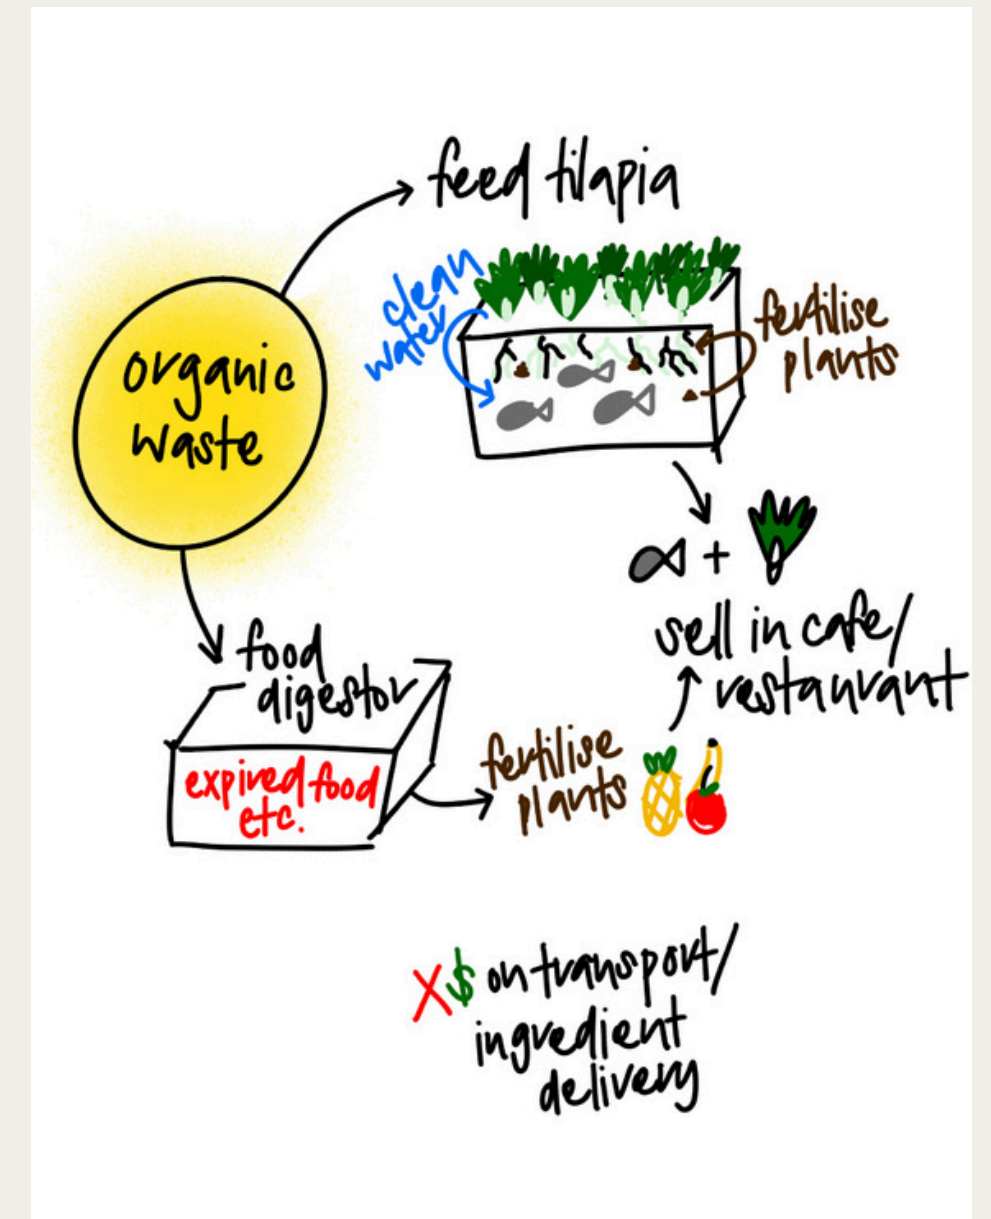 feed tilapia
organic
waste
clean
water
fertilise
plants
sell in cafe/
restaurant
food
digestor
expired food
etc.
fertilise
plants
X$ on transport/
ingredient
delivery